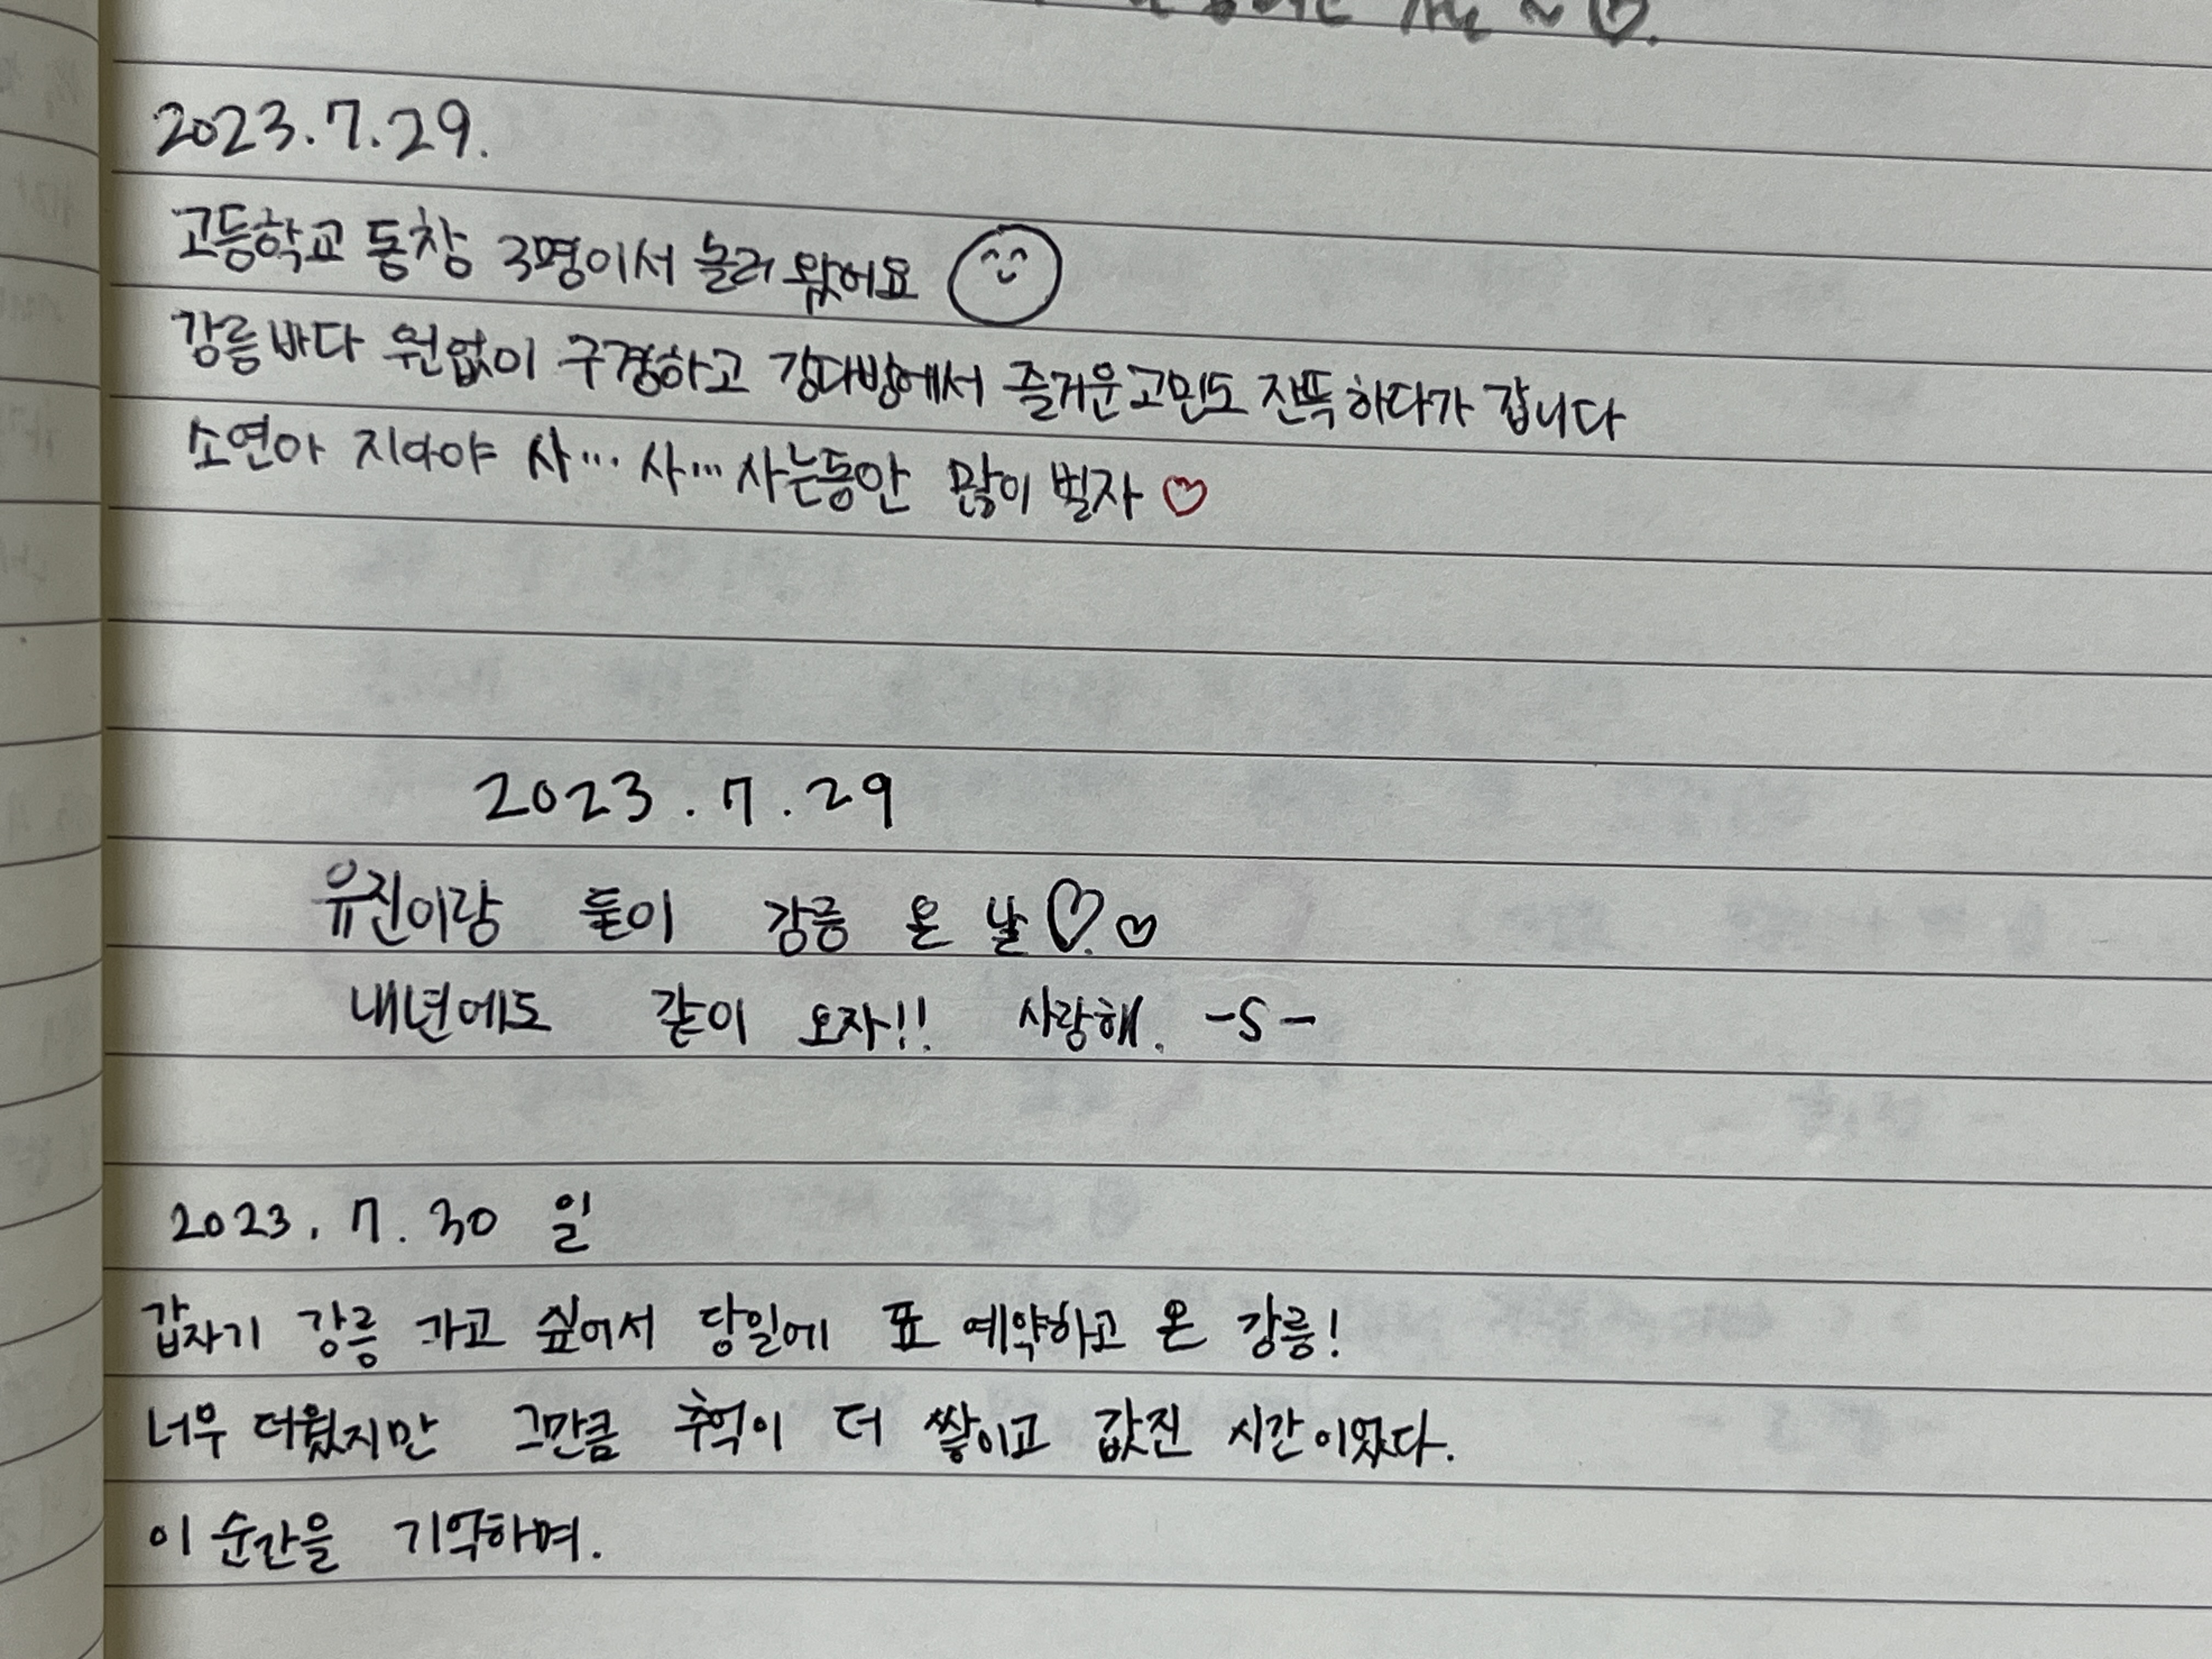 2023.7.29.
고등학교 동창 3명이서 놀러 왔어요
강릉바다 원없이 구경하고 강다방에서 즐거운고민도 잔뜩하다가 갑니다
소연아 지아야 사... 사... 사는동안 많이 벌자 ♡
2023.7.29
유진이랑 둘이 강릉 온 날♡♡
내년에도 같이 오자!! 사랑해. -S-
2023. 7. 30 일
갑자기 강릉 가고 싶어서 당일에 표 예약하고 온 강릉!
너무 더웠지만 그만큼 추억이 더 쌓이고 값진 시간이었다.
이 순간을 기억하며.